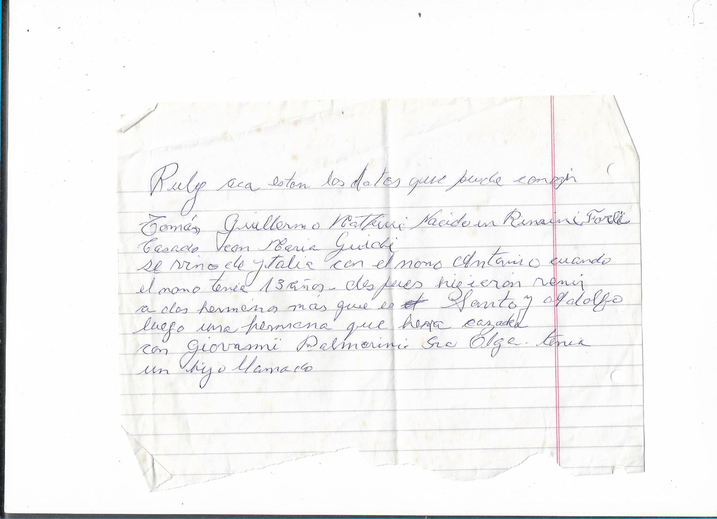 Ruly aca estan los datos que pude conseguir
Tomás Guillermo Matteini Nacido en Rimini Forli
Casado con Maria Guidi
se vino de ytalia con el nono Antonio cuando
el nono tenia 13 años - despues hicieron venir
a dos hermanos más que es Santo y Adolfo
luego una hermana que casada
con Giovanni Palmerini Sra Elga. tenia
un hijo llamado